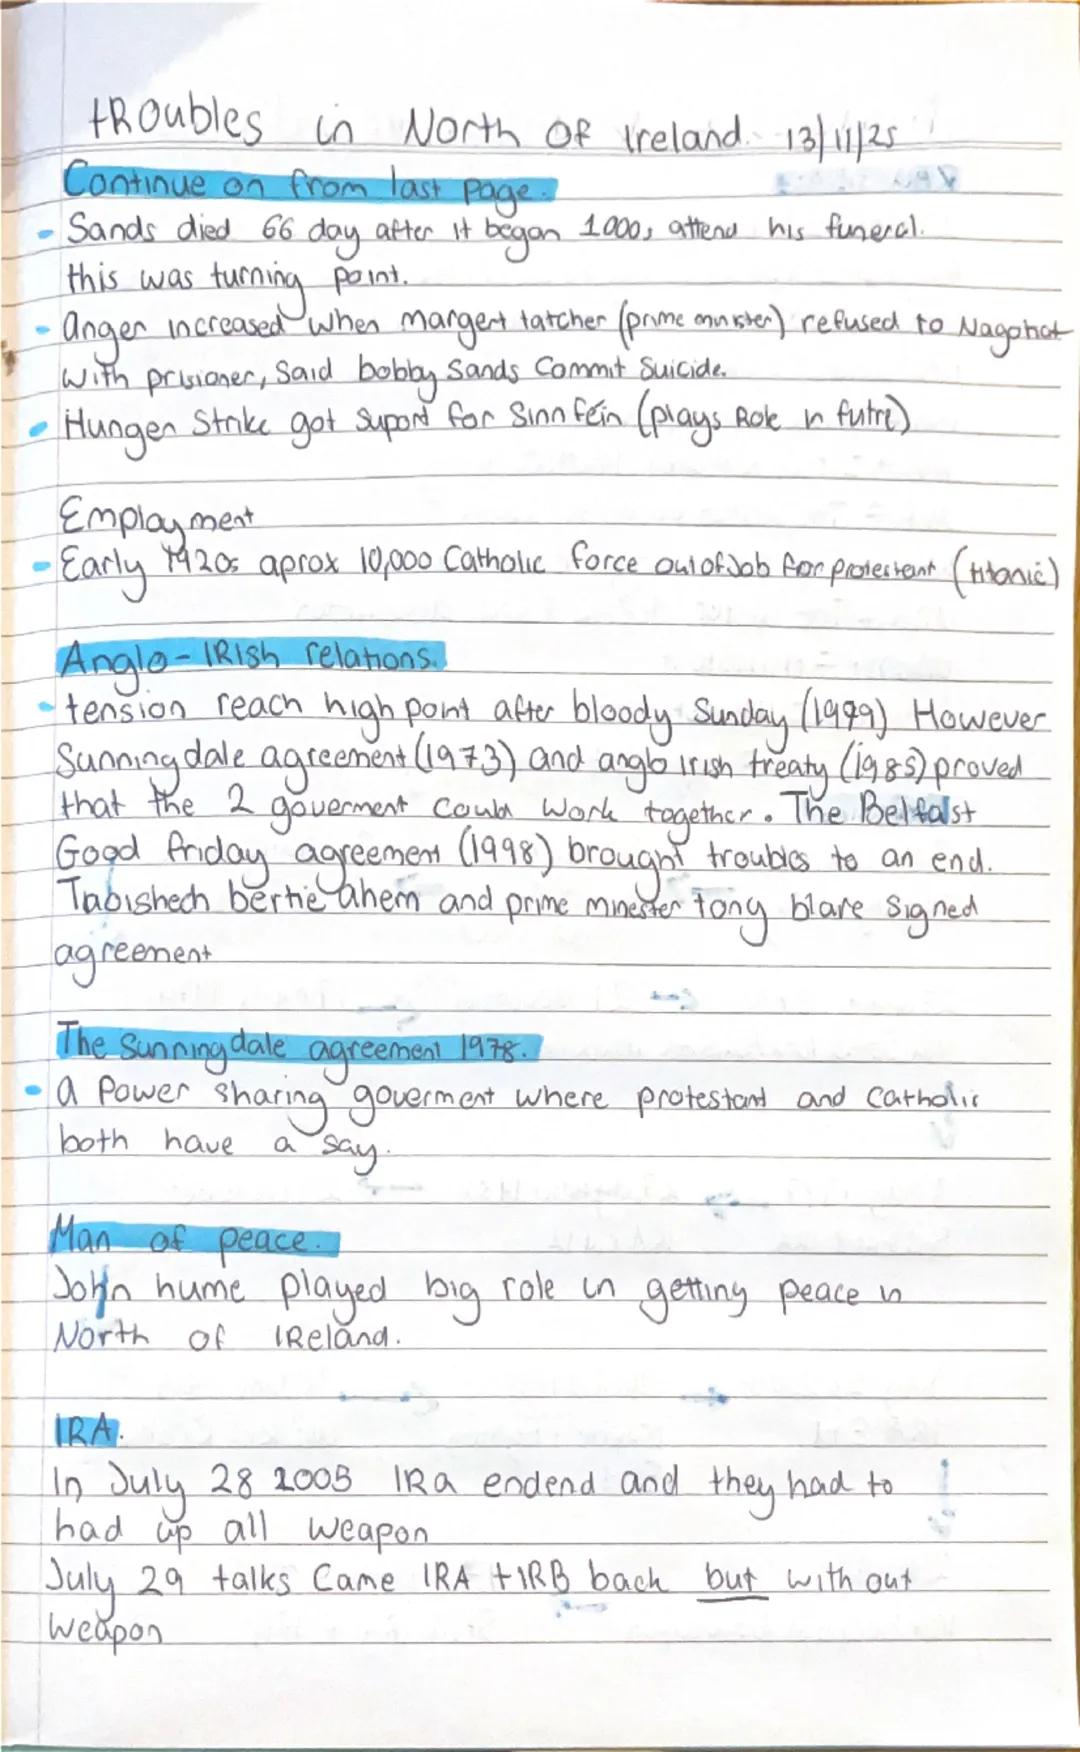 tRoubles in North Of Ireland. 13/11/25
Continue on from last page.
- Sands died 66 day after it began 1000s attend his funeral.
this was turning point.
- anger increased when margert tatcher (prime minister) refused to Nagohat
with prisioner, Said bobby Sands Commit Suicide.
- Hunger Strike got suport for Sinn féin (plays Role in futre)
Employment
- Early 1920s aprox 10,000 Catholic force out of Job for protestant (titanic)
Anglo-IRish relations.
- tension reach high point after bloody Sunday (1979) However
Sunningdale agreement (1973) and anglo irish treaty (1985) proved
that the 2 goverment Could Work together. The Belfast
Good friday agreement (1998) brought troubles to an end.
Tabishech bertie ahern and prime minester tony blare signed
agreement
The Sunningdale agreement 1978.
- a Power sharing goverment where protestant and Catholic
both have a say.
Man of peace.
John hume played big role in getting peace in
North of IReland.
IRA.
In July 28 2005 IRa endend and they had to
had up all weapon
July 29 talks Came IRA + IRB back but with out
weapon